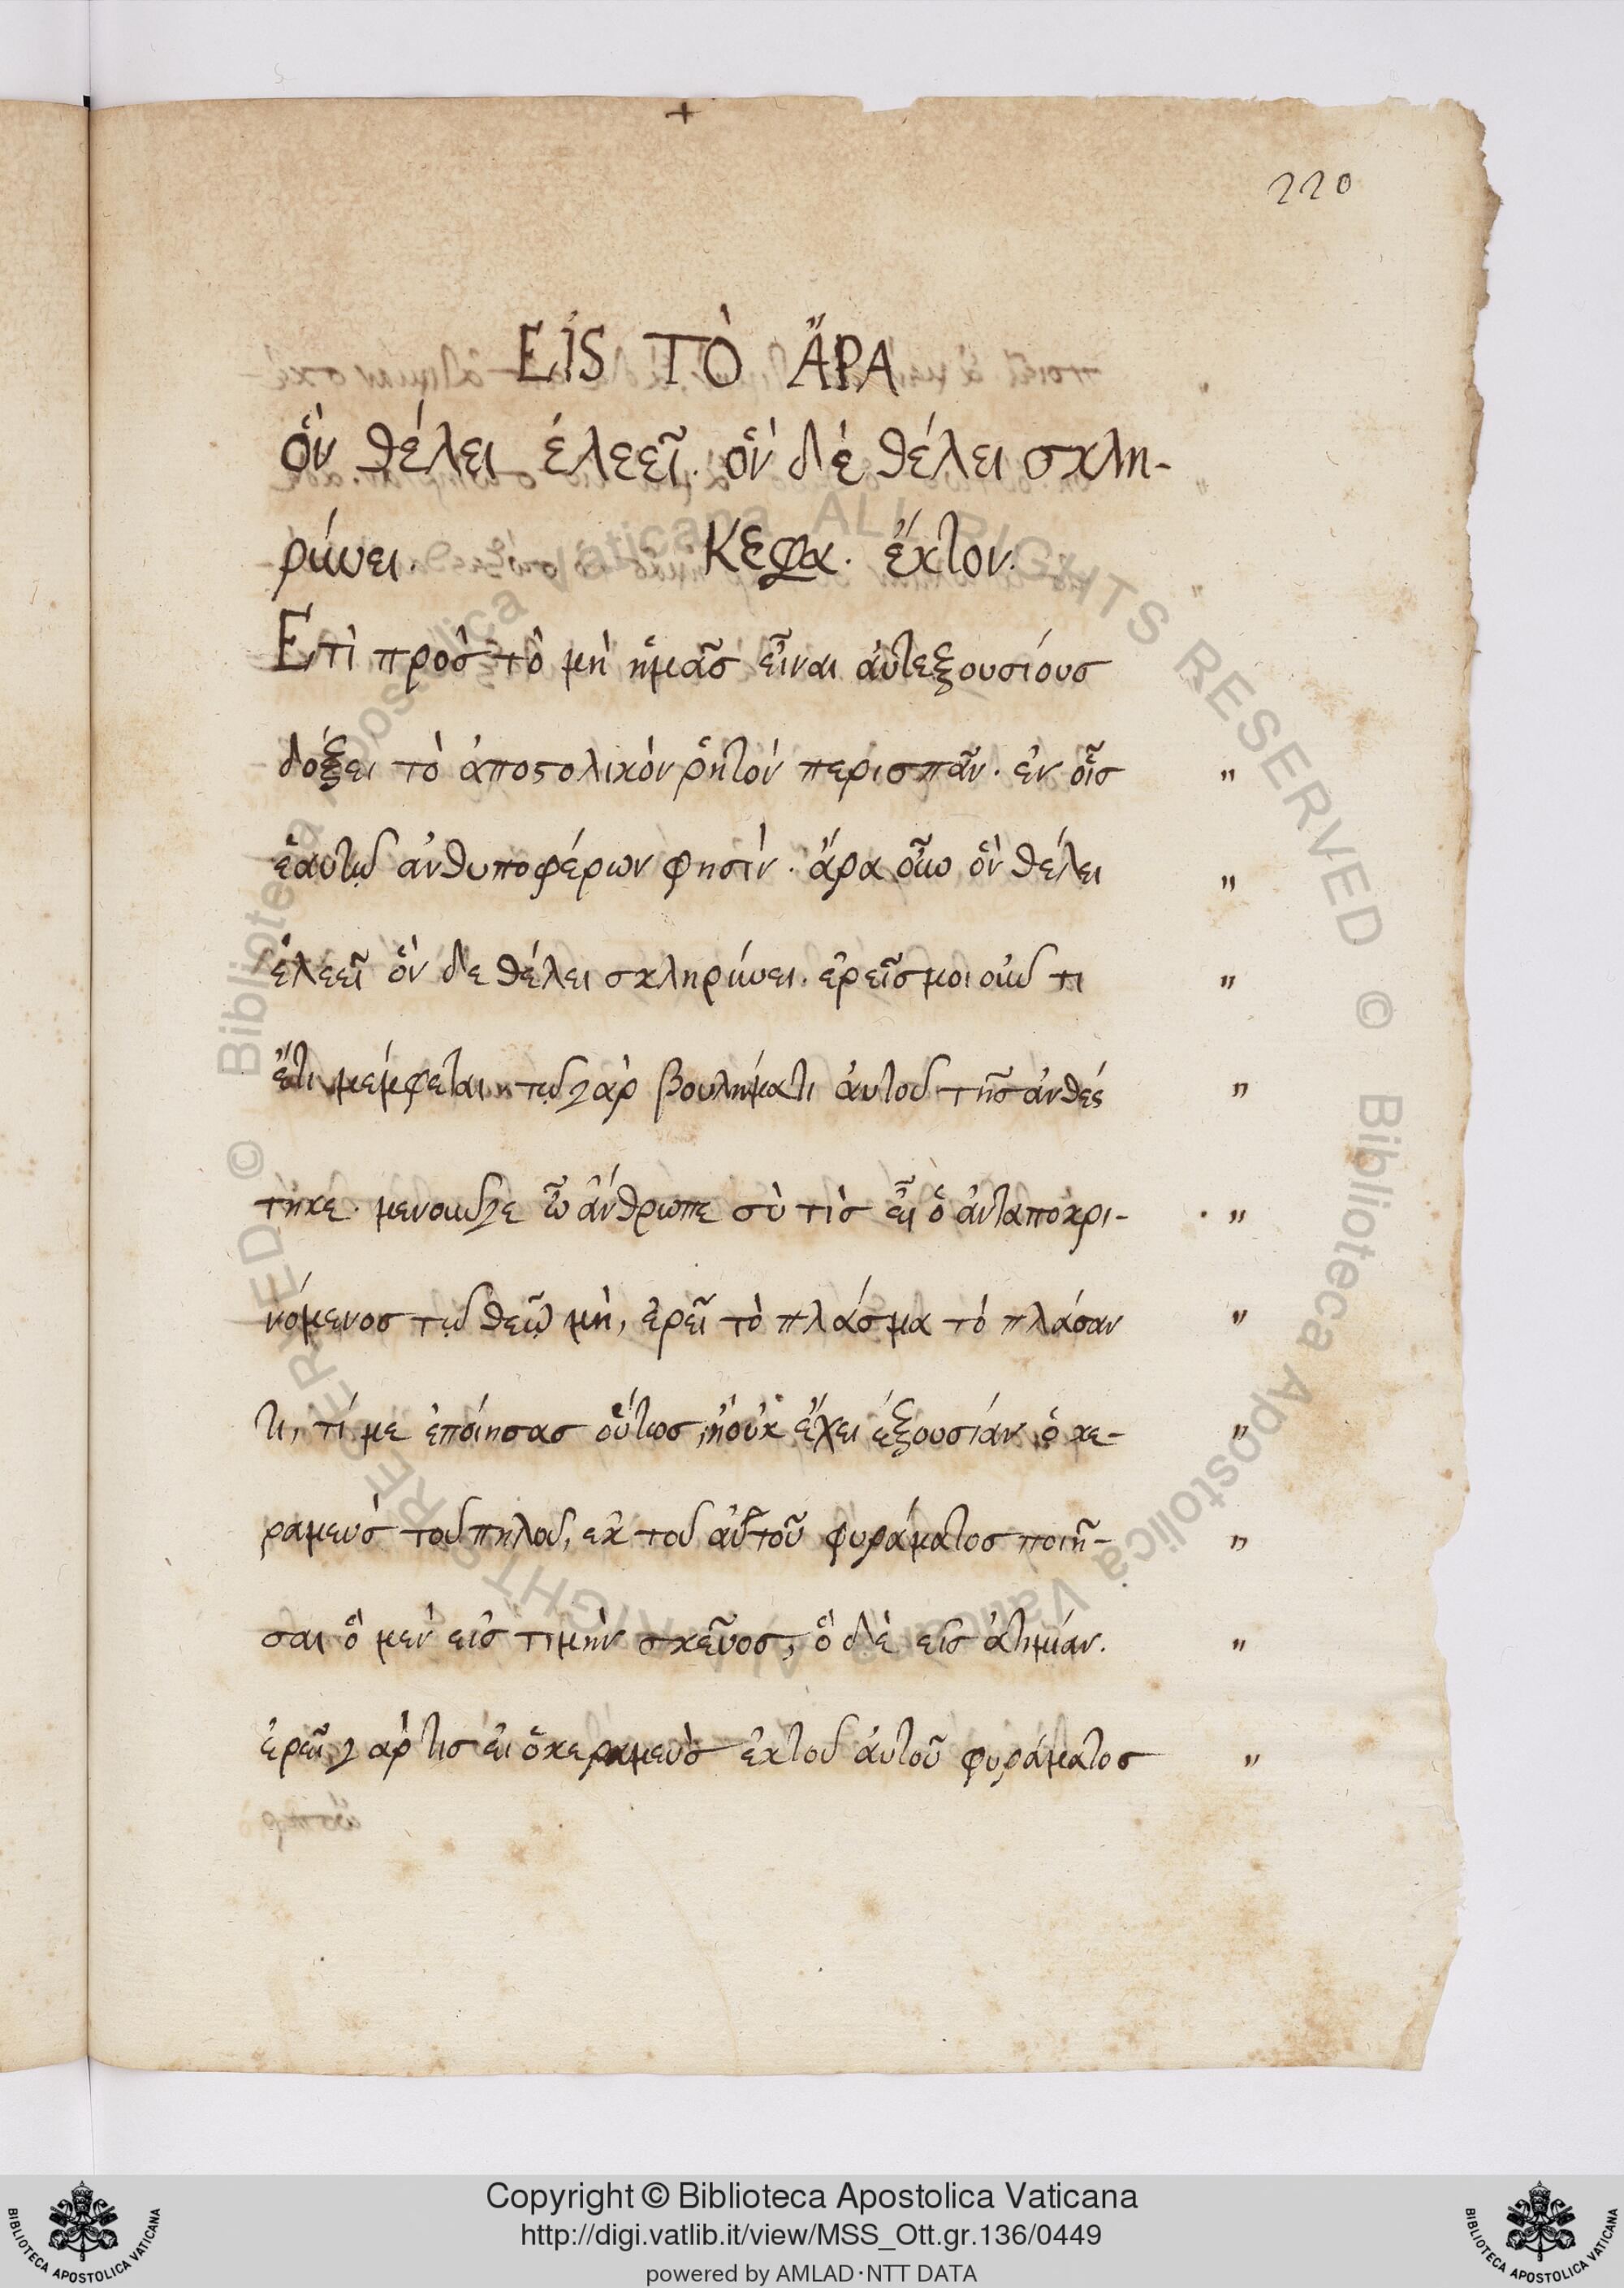 +
220
ΕἸS ΤῸ ἌΡΑ
ὅν θέλει ἐλεεῖ. ὅν δὲ θέλει σκλη-
ρύνει. Κεφα. ἕκτον.
Ετὶ πρὸσ τὸ μὴ ἡμᾶσ εἶναι ἀυτεξουσίους
δόξει τὸ ἀποστολικὸν ῥητὸν περισπᾶν. ἐν οἷσ „
ἑαυτῷ ἀνθυποφέρων φησὶν. ἄρα οὖν ὅν θέλει „
ἐλεεῖ ὅν δε θέλει σκληρύνει. ἐρεῖσ μοι οὖν τι „
ἔτι μέμφεται τῷ γὰρ βουλήματι ἀυτοῦ τῆσ ἀνθές „
τηκε. μενοῦνγε ὦ ἄνθρωπε σὺ τὶσ εἶ ὁ ἀνταποκρι- „
νόμενοσ τῷ θεῷ μὴ, ἐρεῖ τὸ πλάσμα τό πλάσαν „
τι, τί με ἐποίησασ οὕτωσ, ἢ οὐκ ἔχει ἐξουσίαν ὁ κε- „
ραμεὺσ τοῦ πηλοῦ, ἐκ τοῦ αὐτοῦ φυράματοσ ποιῆ- „
σαι ὅ μεν εἰσ τιμὴν σκεῦοσ, ὅ δὲ εἰσ ἀτιμίαν. „
ἐρεῖ γὰρ τισ ει ὁ κεραμεὺσ ἐκ τοῦ ἀυτοῦ φυράματοσ „
Copyright © Biblioteca Apostolica Vaticana
http://digi.vatlib.it/view/MSS_Ott.gr.136/0449
powered by AMLAD·NTT DATA
BIBLIOTECA APOSTOLICA VATICANA
BIBLIOTECA APOSTOLICA VATICANA
© Biblioteca Apostolica Vaticana ALL RIGHTS RESERVED © Biblioteca Apostolica Vaticana ALL RIGHTS RESERVED